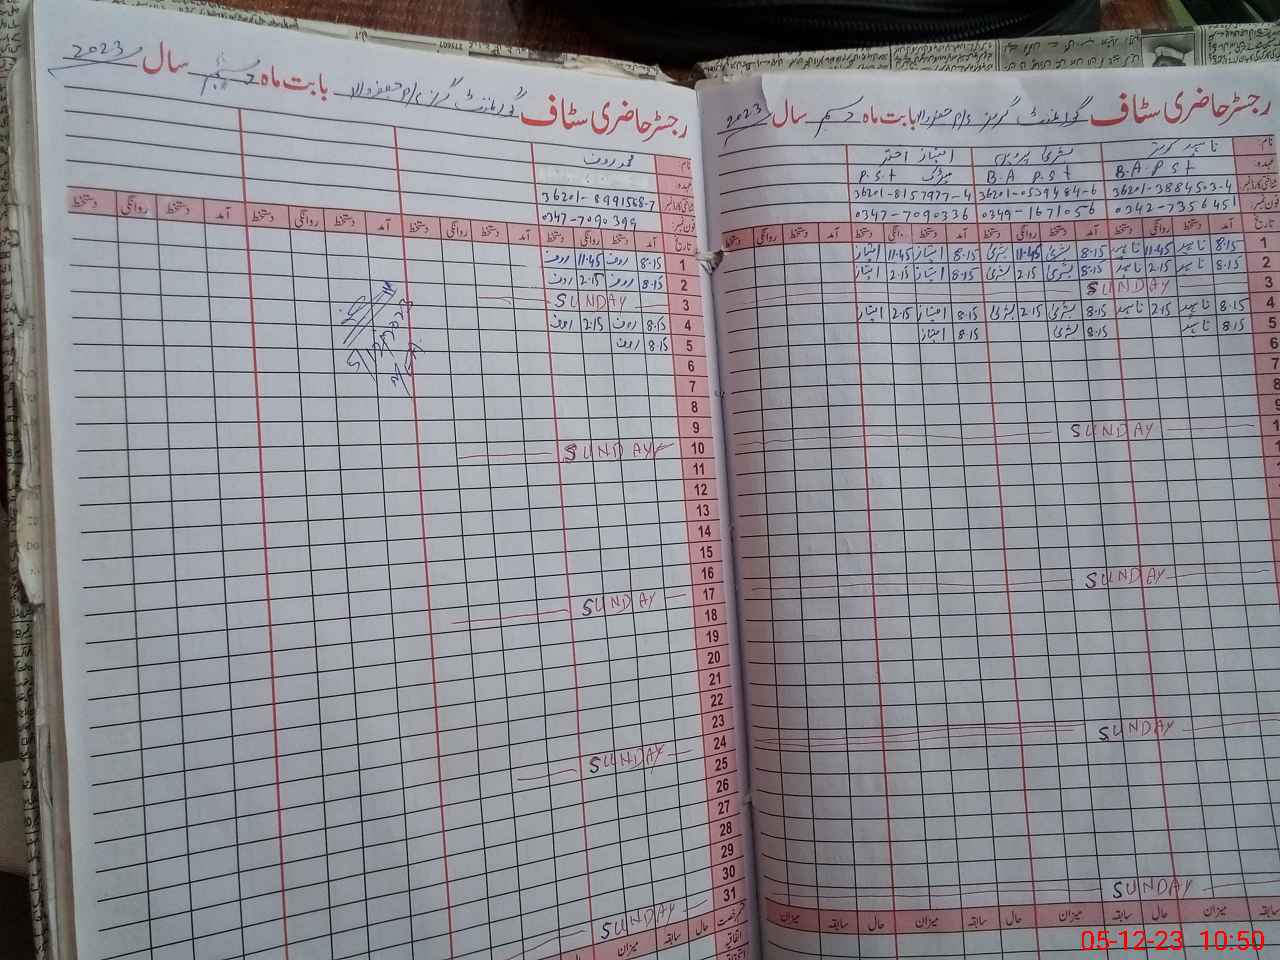 رجسٹر حاضری سٹاف گورنمنٹ گرلز بابت ماہ دسمبر سال 2023
نام ناہید کوثر بشریٰ پروین امتیاز اختر
عہدہ B.A P.S.t B.A P.S.t میٹرک P.S.t
شناختی کارڈ نمبر 36201-3884503-4 36201-0539484-6 36201-8157977-4
فون نمبر 0342-7356451 0349-1671056 0347-7090336
تاریخ آمد دستخط روانگی دستخط آمد دستخط روانگی دستخط آمد دستخط روانگی دستخط آمد دستخط روانگی دستخط
1 8.15 ناہید 11.45 ناہید 8.15 بشریٰ 11.45 بشریٰ 8.15 امتیاز 11.45 امتیاز
2 8.15 ناہید 2.15 ناہید 8.15 بشریٰ 2.15 بشریٰ 8.15 امتیاز 2.15 امتیاز
3 SUNDAY
4 8.15 ناہید 2.15 ناہید 8.15 بشریٰ 2.15 بشریٰ 8.15 امتیاز 2.15 امتیاز
5 8.15 ناہید 8.15 بشریٰ 8.15 امتیاز
6
7
8
9
1 SUNDAY
SUNDAY
SUNDAY
SUNDAY
میزان سابقہ حال میزان سابقہ حال میزان سابقہ حال میزان سابقہ حال
رجسٹر حاضری سٹاف گورنمنٹ گرلز بابت ماہ دسمبر سال 2023
نام محمد رؤف
عہدہ
شناختی کارڈ نمبر 36201-8991568-7
فون نمبر 0347-7090399
تاریخ آمد دستخط روانگی دستخط آمد دستخط روانگی دستخط آمد دستخط روانگی دستخط آمد دستخط روانگی دستخط
1 8.15 رؤف 11.45 رؤف
2 8.15 رؤف 2.15 رؤف
3 SUNDAY
4 8.15 رؤف 2.15 رؤف
5 8.15 رؤف
5/12/2023
6
7
8
9
10 SUNDAY
11
12
13
14
15
16
17 SUNDAY
18
19
20
21
22
23
24 SUNDAY
25
26
27
28
29
30
31 SUNDAY
قسم رخصت حال سابقہ میزان
اتفاقیہ
05-12-23 10:50